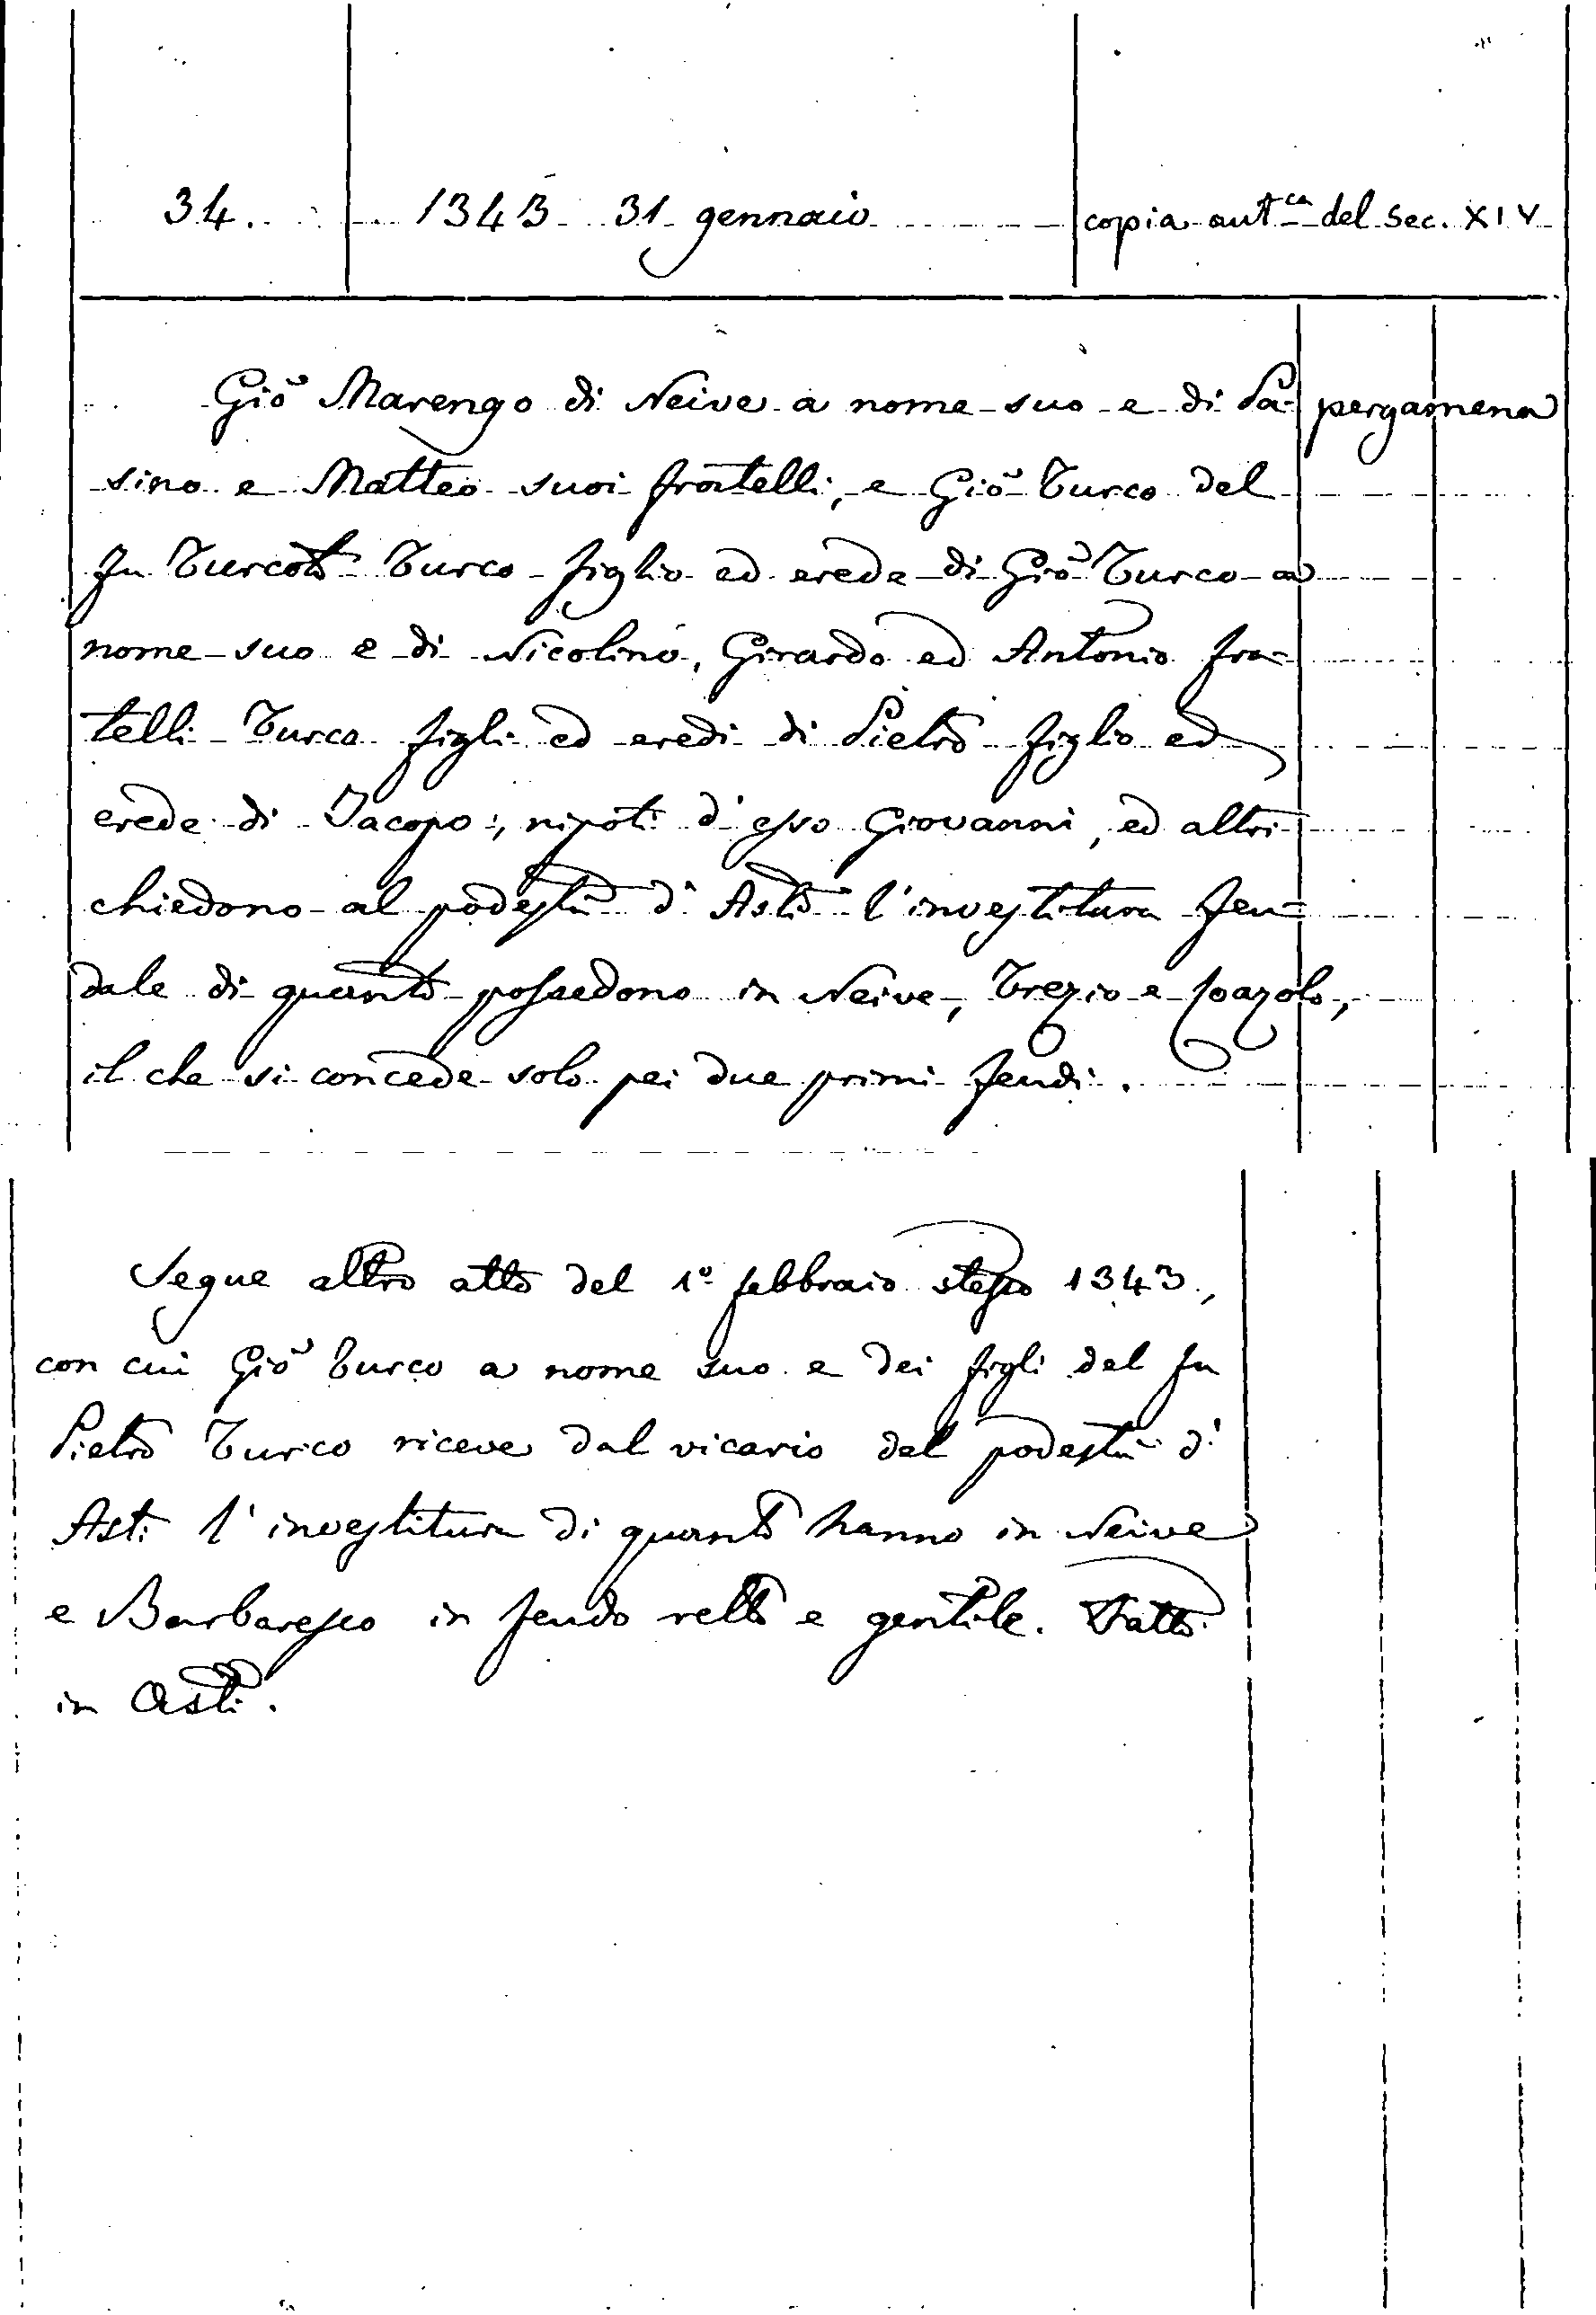 34. 1343 31 gennaio copia autca del sec. XIV
Giõ Marengo di Neive a nome suo e di Pa- pergamena
sino e Matteo suoi fratelli, e Giõ Turco del
fu Turcoto Turco figlio ed erede di Giõ Turco a
nome suo e di Nicolino, Girardo ed Antonio fra-
telli Turco figli ed eredi di Pietro figlio ed
erede di Jacopo, nipoti d'esso Giovanni, ed altri
chiedono al podestà d'Asti l'investitura feu-
dale di quanto possedono in Neive, Trezio e
il che si concede solo pei due primi feudi.
Segue altro atto del 1º febbraio stesso 1343,
con cui Giõ Turco a nome suo e dei figli del fu
Pietro Turco riceve dal vicario del podestà d'
Asti l'investitura di quanto hanno in Neive
e Barbaresco in feudo retto e gentile. Fatto
in Asti.